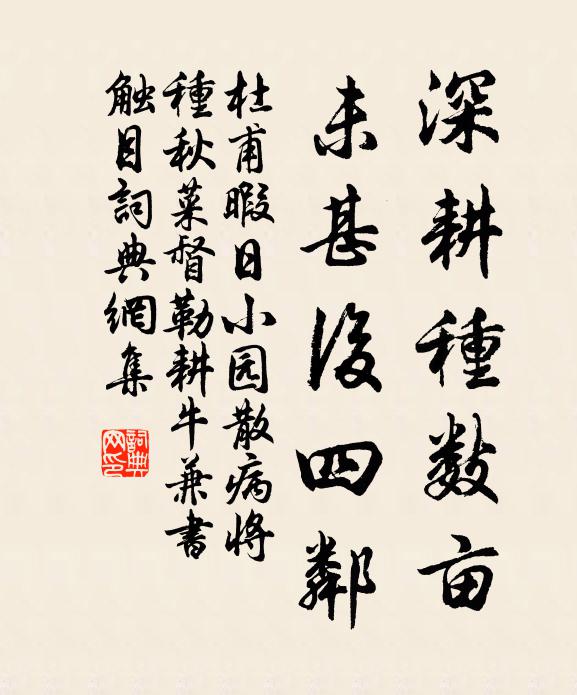 深耕種数亩
未甚後四鄰
杜甫暇日小园散病将
種秋菜督勒耕牛兼書
触目詞典網集
詞典
网印